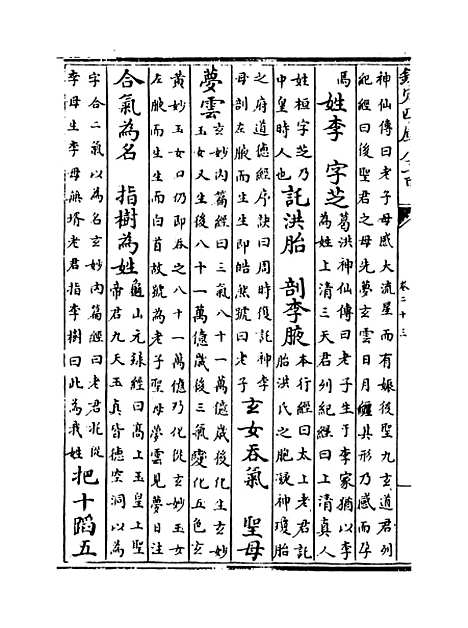 欽定四庫全書
卷二十三
神仙傳曰老子母感大流星而有娠後聖九玄道君列
紀經曰後聖君之母先夢玄雲日月纏其形乃感而孕
焉 姓李 字芝 葛洪神仙傳曰老子生于李家猶以李
為姓上清三天君列紀經曰上清真人
姓桓字芝乃
中皇時人也 託洪胎 剖李腋 本行經曰太上老君託
胎洪氏之胞凝神瓊胎
之府道德經序訣曰周時復託神李
母剖左腋而生生即皓然號曰老子 玄女吞氣 聖母
夢雲 玄妙内篇經曰三氣八十一萬億歲後化生玄妙
玉女又生後八十一萬億歲後三氣變化五色玄
黄妙玉女口仍即吞之八十一萬億乃化從玄妙玉女
左腋而生生而白首故號為老子聖母夢雲見夢日注
合氣為名 指樹為姓 龜山元録經曰高上玉皇上聖
帝君九天玉真皆德空洞以為
字合二氣以為名玄妙内篇經曰老君非從
李母生李母無堺老君指李樹曰此為我姓 把十蹈五